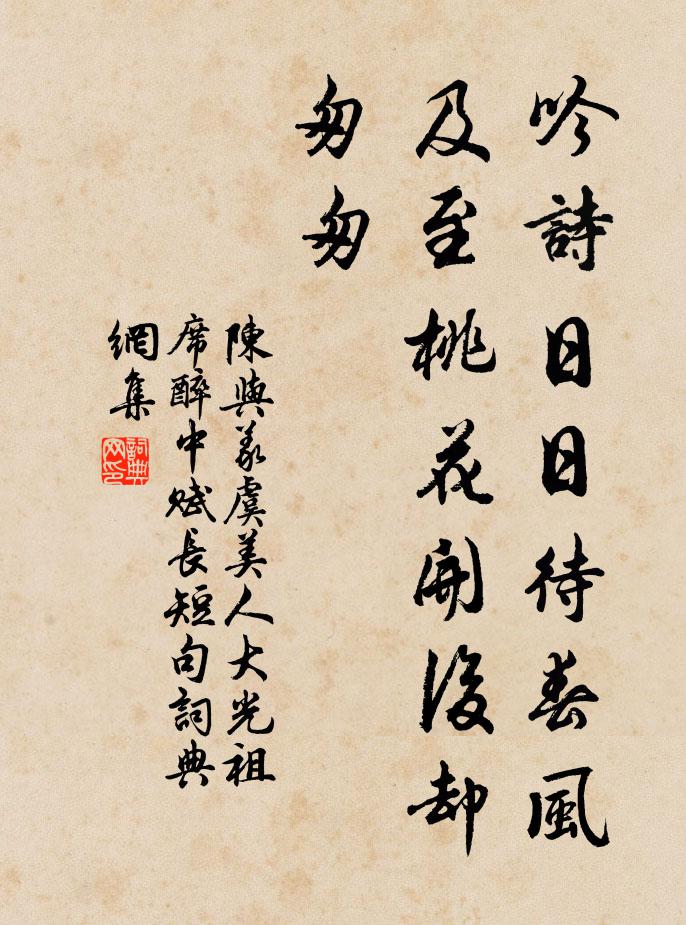 吟詩日日待春風
及至桃花開後却
匆匆
陳與義虞美人大光祖
席醉中賦長短句詞典
網集
詞典網印